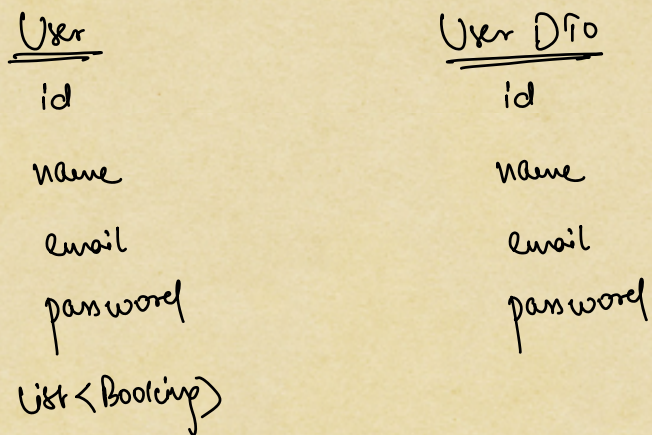 User
id
name
email
password
List<Booking>
User DTO
id
name
email
password